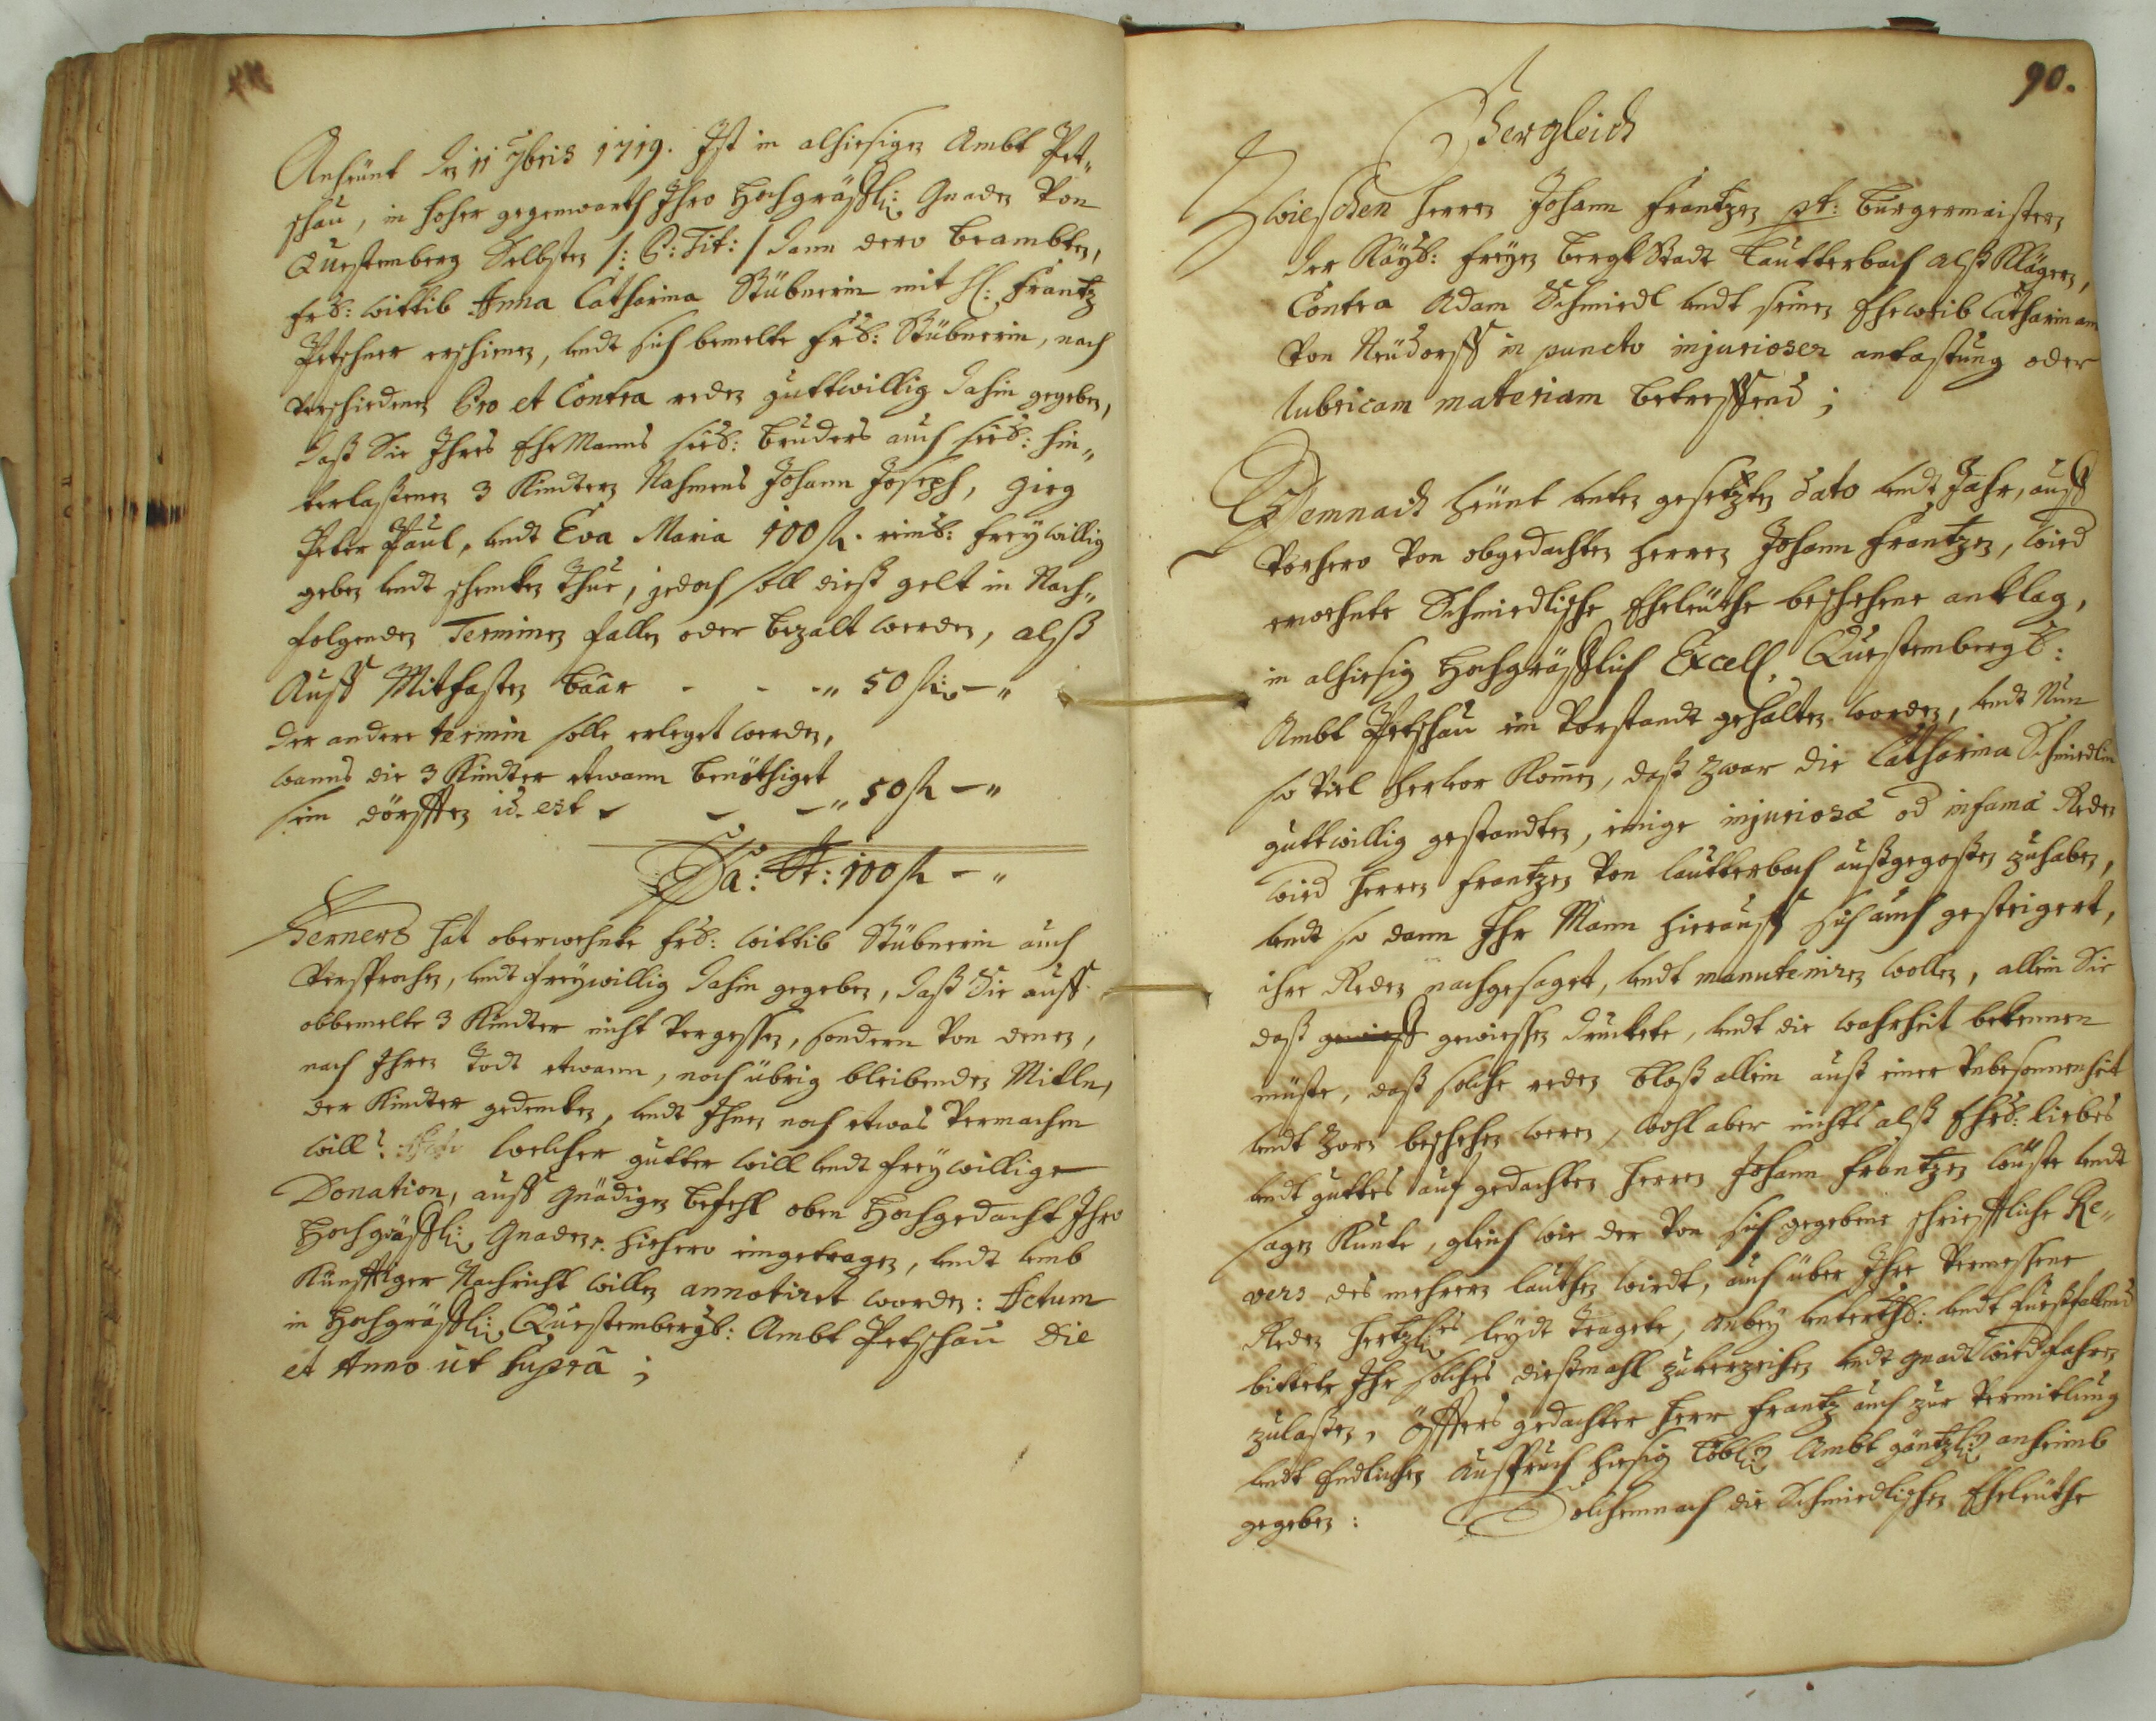 Anheünt den 11 7bris 1719. Ist in alhiesigen Ambt Pet„
schau, in hoher gegenwarth Ihro Hochgräffl: Gnaden Von
Questemberg Selbsten /: P: Tit: / dann dero Beambten,
Ers: wittib Anna Catharina Stübnerin mit H: Frantz
Petschner erschienen, undt sich bemelte Ers: Stübnerin, nach
Verschiedenen Pro et Contra reden guttwillig dahin gegeben,
daß Sie Ihres EheManns seel: Bruders auch seel: hin„
terlaßenen 3 Kindtern Nahmens Johann Joseph, Girg
Peter Paul, undt Eva Maria 100 fl. reins: freywillig
geben undt schencken thue, jedoch soll dieß gelt in Nach„
folgenden Terminen fallen oder bezalt werden, alß
Auff Mitfasten baar - - -„ 50 fl: -„
der andere termin solle erleget werden,
wanns die 3 Kindter etwann benöthiget
sein dörfften id. est - - -„ 50 fl -„
Sa: tt: 100 fl -„
Ferners hat oberwehnte Ers: wittib Stübnerin auch
Versprochen, undt freywillig dahin gegeben, daß Sie auff
obbemelte 3 Kindter nicht Vergessen, sondern Von denen,
nach Ihren Todt etwann, noch übrig bleibenden Mitteln,
der Kindter gedencken, undt Ihnen noch etwas Vermachen
will: welcher gutter will undt freywillige
Donation, auff Gnädigen Befehl oben Hochgedacht Ihro
Hochgräffl: Gnaden hiehero eingetragen, undt umb
Künfftiger Nachricht willen annotiret worden: Actum
in Hochgräffl: Questembergl: Ambt Petschau Die
et Anno ut supra ;
90.
Vergleich
Zwieschen herren Johann Frantzen pt: Burgermaistern
der Kayß: freyen BergkStadt Lautterbach alß Klägern,
Contra Adam Schmiedl undt seinen Eheweib Catharinam
Von Neüdorff in puncto injurioser antastung oder
lubricam materiam betreffend ;
Demnach heünt unten gesetzten dato undt Jahr, auff
Vorhero Von obgedachten herren Johann Frantzen, wied
erwehnte Schmiedlische Eheleüthe beschehene anklag,
in alhiesig Hochgräfflich Excell. Questembergl:
Ambt Petschau ein Vorstandt gehalten worden, undt Nun
so Viel hervor Komen, daß zwar die Catharina Schmiedlin
guttwillig gestandten, einige injuriosæ od infamæ Reden
wied herren Frantzen Von Lautterbach außgegoßen zuhaben,
undt so dann Ihr Mann hierauff sich auch gesteigert,
ihre Reden nachgesaget, undt manuteniren wollen, allein Sie
daß gewiß gewiessen druckete, undt die wahrheit bekennen
müste, daß solche reden bloß allein auß einer Unbesonnenheit
undt Zorn beschehen weren, wohl aber nichts alß Ehrl: liebes
undt guttes auf gedachten herren Johann Frantzen wüste undt
sagen Kunte, gleich wie der Von sich gegebene schriefftliche Re„
vers des mehrern lauthen wirdt, auch über Ihre Vermessene
Reden hertzliches leydt tragete, anbey unterthl: undt fueßfallend
bittete Ihr solches diesmahl zuverzeihen undt gnadt wiedfahren
zulaßen, öffters gedachter herr Frantz auch zur Vermitlung
undt Endlichen Ausspruch hiesig löbl: Ambt gäntzl: anheimb
gegeben: Solchemnach die Schmiedlischen Eheleüthe